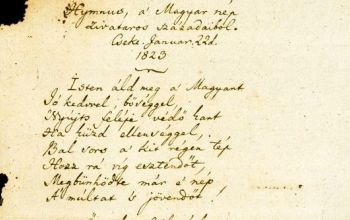 Hymnus, a' Magyar nép
zivataros századaiból.
Cseke. Januar. 22d.
1823
Isten áld meg a' Magyart
Jó kedvvel, bőséggel,
Nyújts feléje védő kart
Ha küzd ellenséggel,
Bal sors a' kit régen tép
Hozz rá víg esztendőt,
Megbűnhődte már e' nép
A' multat 's jövendőt!